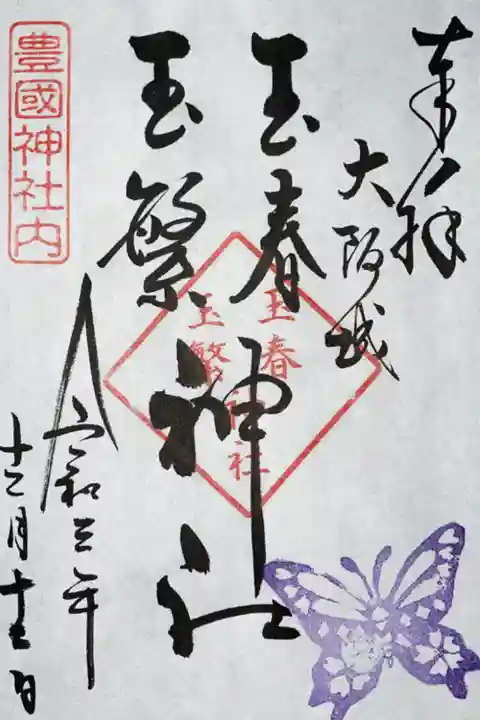 奉拝
大阪城
玉春
玉繁
神社
玉春
玉繁
神社
豊國神社内
令和三年
十二月